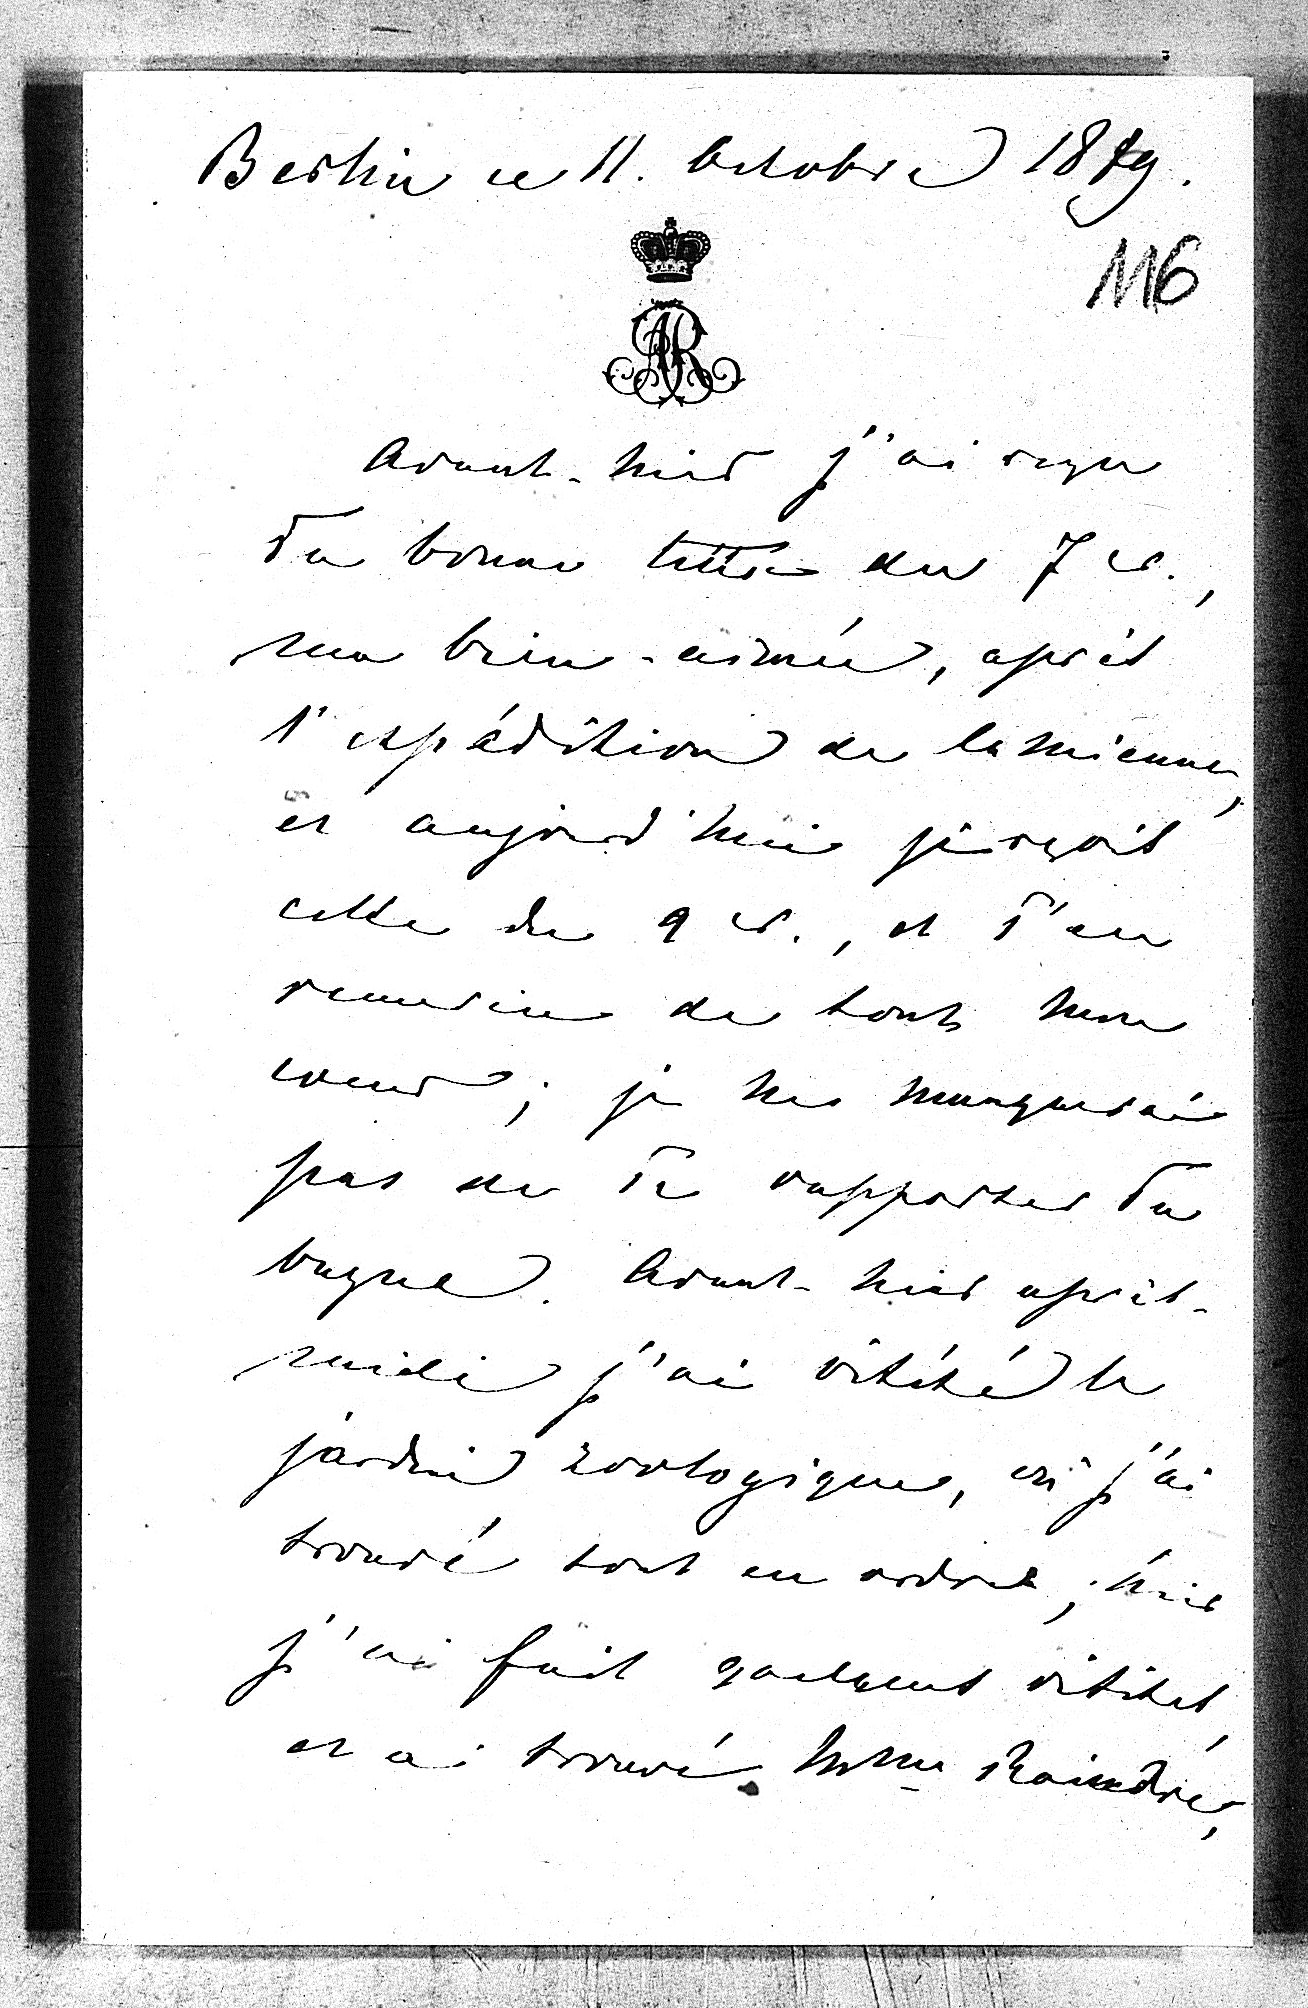 Berlin ce 11. Octobre 1879.
116
AR
Avant-hier j'ai reçu
Ta bonne lettre du 7 cr.,
ma bien-aimée, après
l'expédition de la mienne,
et aujourd'hui je reçois
celle du 9 cr., et T'en
remercie de tout mon
coeur; je ne manquerai
pas de Te rapporter Ta
bague. Avant-hier après-
midi j'ai visité le
jardin zoologique, où j'ai
trouvé tout en ordre; hier
j'ai fait quelques visites,
et ai trouvé Mme Raindre,